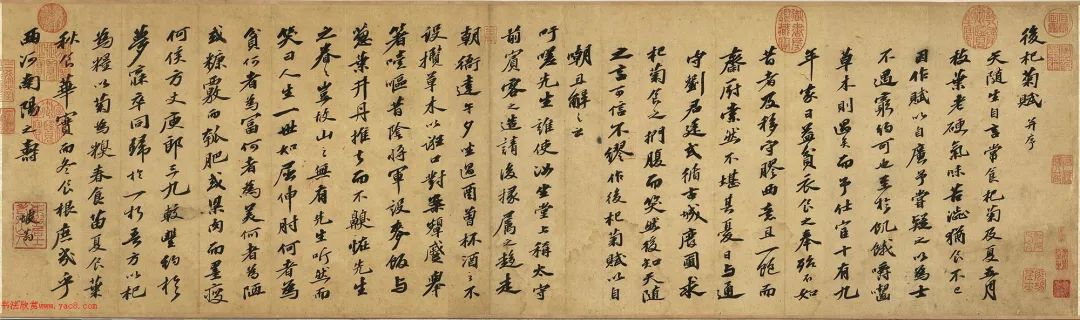 後杞菊賦 并序
天隨生自言常食杞菊及夏五月
枝葉老硬氣味苦澀猶食不已
因作賦以自廣予嘗疑之以為士
不遇窮約可也至於飢餓嚼齧
草木則過矣而予仕宦十有九
年家日益貧衣食之奉殆不如
昔者及移守膠西意且一飽而
齋厨索然不堪其憂日與通
守劉君廷式循古城廢圃求
杞菊食之捫腹而笑然後知天隨
之言可信不繆作後杞菊賦以自
嘲且解之云
吁嗟先生誰使汝坐堂上稱太守
前賓客之造請後掾屬之趨走
朝衙達午夕坐過酉曾杯酒之不
設攬草木以誑口對案顰蹙舉
箸噎嘔昔陰將軍設麥飯與
葱葉井丹推去而不嗅怪先生
之眷々豈故山之無有先生听然而
笑曰人生一世如屈伸肘何者為
貧何者為富何者為美何者為陋
或糠覈而瓠肥或粱肉而墨瘦
何侯方丈庾郎三九較豐約於
夢寐卒同歸於一朽吾方以杞
為糧以菊為糗春食苗夏食葉
秋食華實而冬食根庶幾乎
西河南陽之壽
书法欣赏www.yac8.com